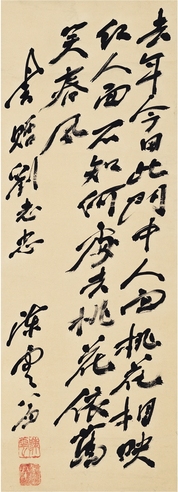 去年今日此門中人面桃花相映
红人面不知何處去桃花依舊
笑春风
書贈劉忠